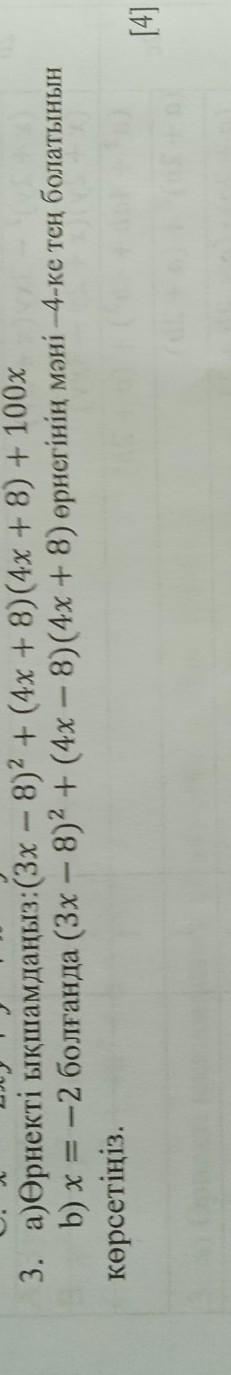 3. а)Өрнекті ықшамдаңыз:(3x − 8)² + (4x + 8)(4x + 8) + 100x
b) x = −2 болғанда (3x − 8)² + (4x − 8)(4x + 8) өрнегінің мәні −4-ке тең болатынын
көрсетіңіз.
[4]